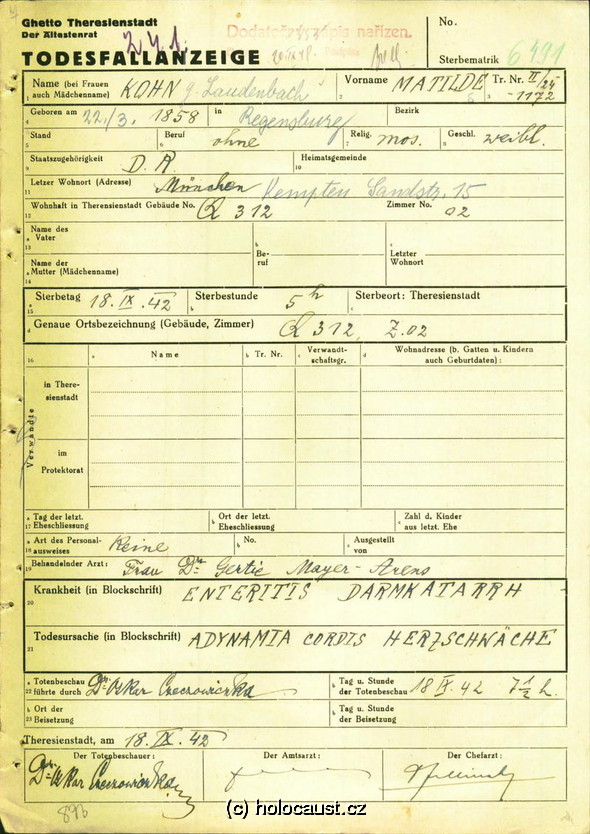 Ghetto Theresienstadt
Der Ältestenrat
TODESFALLANZEIGE
241.
Dodatečný zápis nařízen.
No.
Sterbematrik 6491
Name (bei Frauen auch Mädchenname) KOHN g. Laudenbach
Vorname MATILDE
Tr. Nr. II/25 -1172
Geboren am 22./3. 1858 in Regensburg Bezirk
Stand Beruf ohne Relig. mos. Geschl. weibl.
Staatszugehörigkeit D. R. Heimatsgemeinde
Letzer Wohnort (Adresse) München Kempten Sandstr. 15
Wohnhaft in Theresienstadt Gebäude No. Q 312 Zimmer No. 02
Name des Vater
Beruf
Letzter Wohnort
Name der Mutter (Mädchenname)
Sterbetag 18. IX. 42 Sterbestunde 5 h Sterbeort: Theresienstadt
Genaue Ortsbezeichnung (Gebäude, Zimmer) Q 312, Z. 02
Name Tr. Nr. Verwandtschaftsgr. Wohnadresse (b. Gatten u. Kindern auch Geburtdaten):
Verwandte
in Theresienstadt
im Protektorat
Tag der letzt. Eheschliessung
Ort der letzt. Eheschliessung
Zahl d. Kinder aus letzt. Ehe
Art des Personalausweises Keine No. Ausgestellt von
Behandelnder Arzt: Frau Dr. Gertie Mayer-Arens
Krankheit (in Blockschrift) ENTERITIS DARMKATARRH
Todesursache (in Blockschrift) ADYNAMIA CORDIS HERZSCHWÄCHE
Totenbeschau führte durch Dr. Oskar Czeczowiczka
Tag u. Stunde der Totenbeschau 18 IX. 42 7 1/2 h.
Ort der Beisetzung
Tag u. Stunde der Beisetzung
Theresienstadt, am 18. IX. 42
Der Totenbeschauer: Der Amtsarzt: Der Chefarzt:
Dr. Oskar Czeczowiczka
(c) holocaust.cz